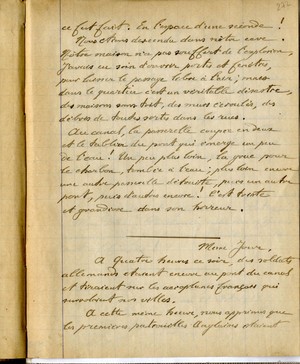 ce fut fait. En l'espace d'une seconde !
Nous étions descendu dans notre cave.
Notre maison n'a pas souffert de l'explosion,
j'avais eu soin d'ouvrir porte et fenêtres,
pour laisser le passage libre à l'air ; mais
dans le quartier c'est un véritable désastre,
des maisons sans toit, des murs écroulés, des
débris de toutes sortes dans les rues.
Au canal, la passerelle coupée en deux
et le tablier du pont qui émerge un peu
de l'eau ! Un peu plus loin, la grue pour
le charbon, tombée à l'eau ; plus loin encore
une autre passerelle détruite, puis un autre
pont, puis d'autres encore ! C'est triste
et grandiose dans son horreur.
Même Jour.
A quatre heures ce soir, des soldats
allemands étaient encore au pont du canal
et tiraient sur les aéroplanes français qui
survolent nos villes.
A cette même heure, nous apprenons que
les premières patrouilles Anglaises étaient